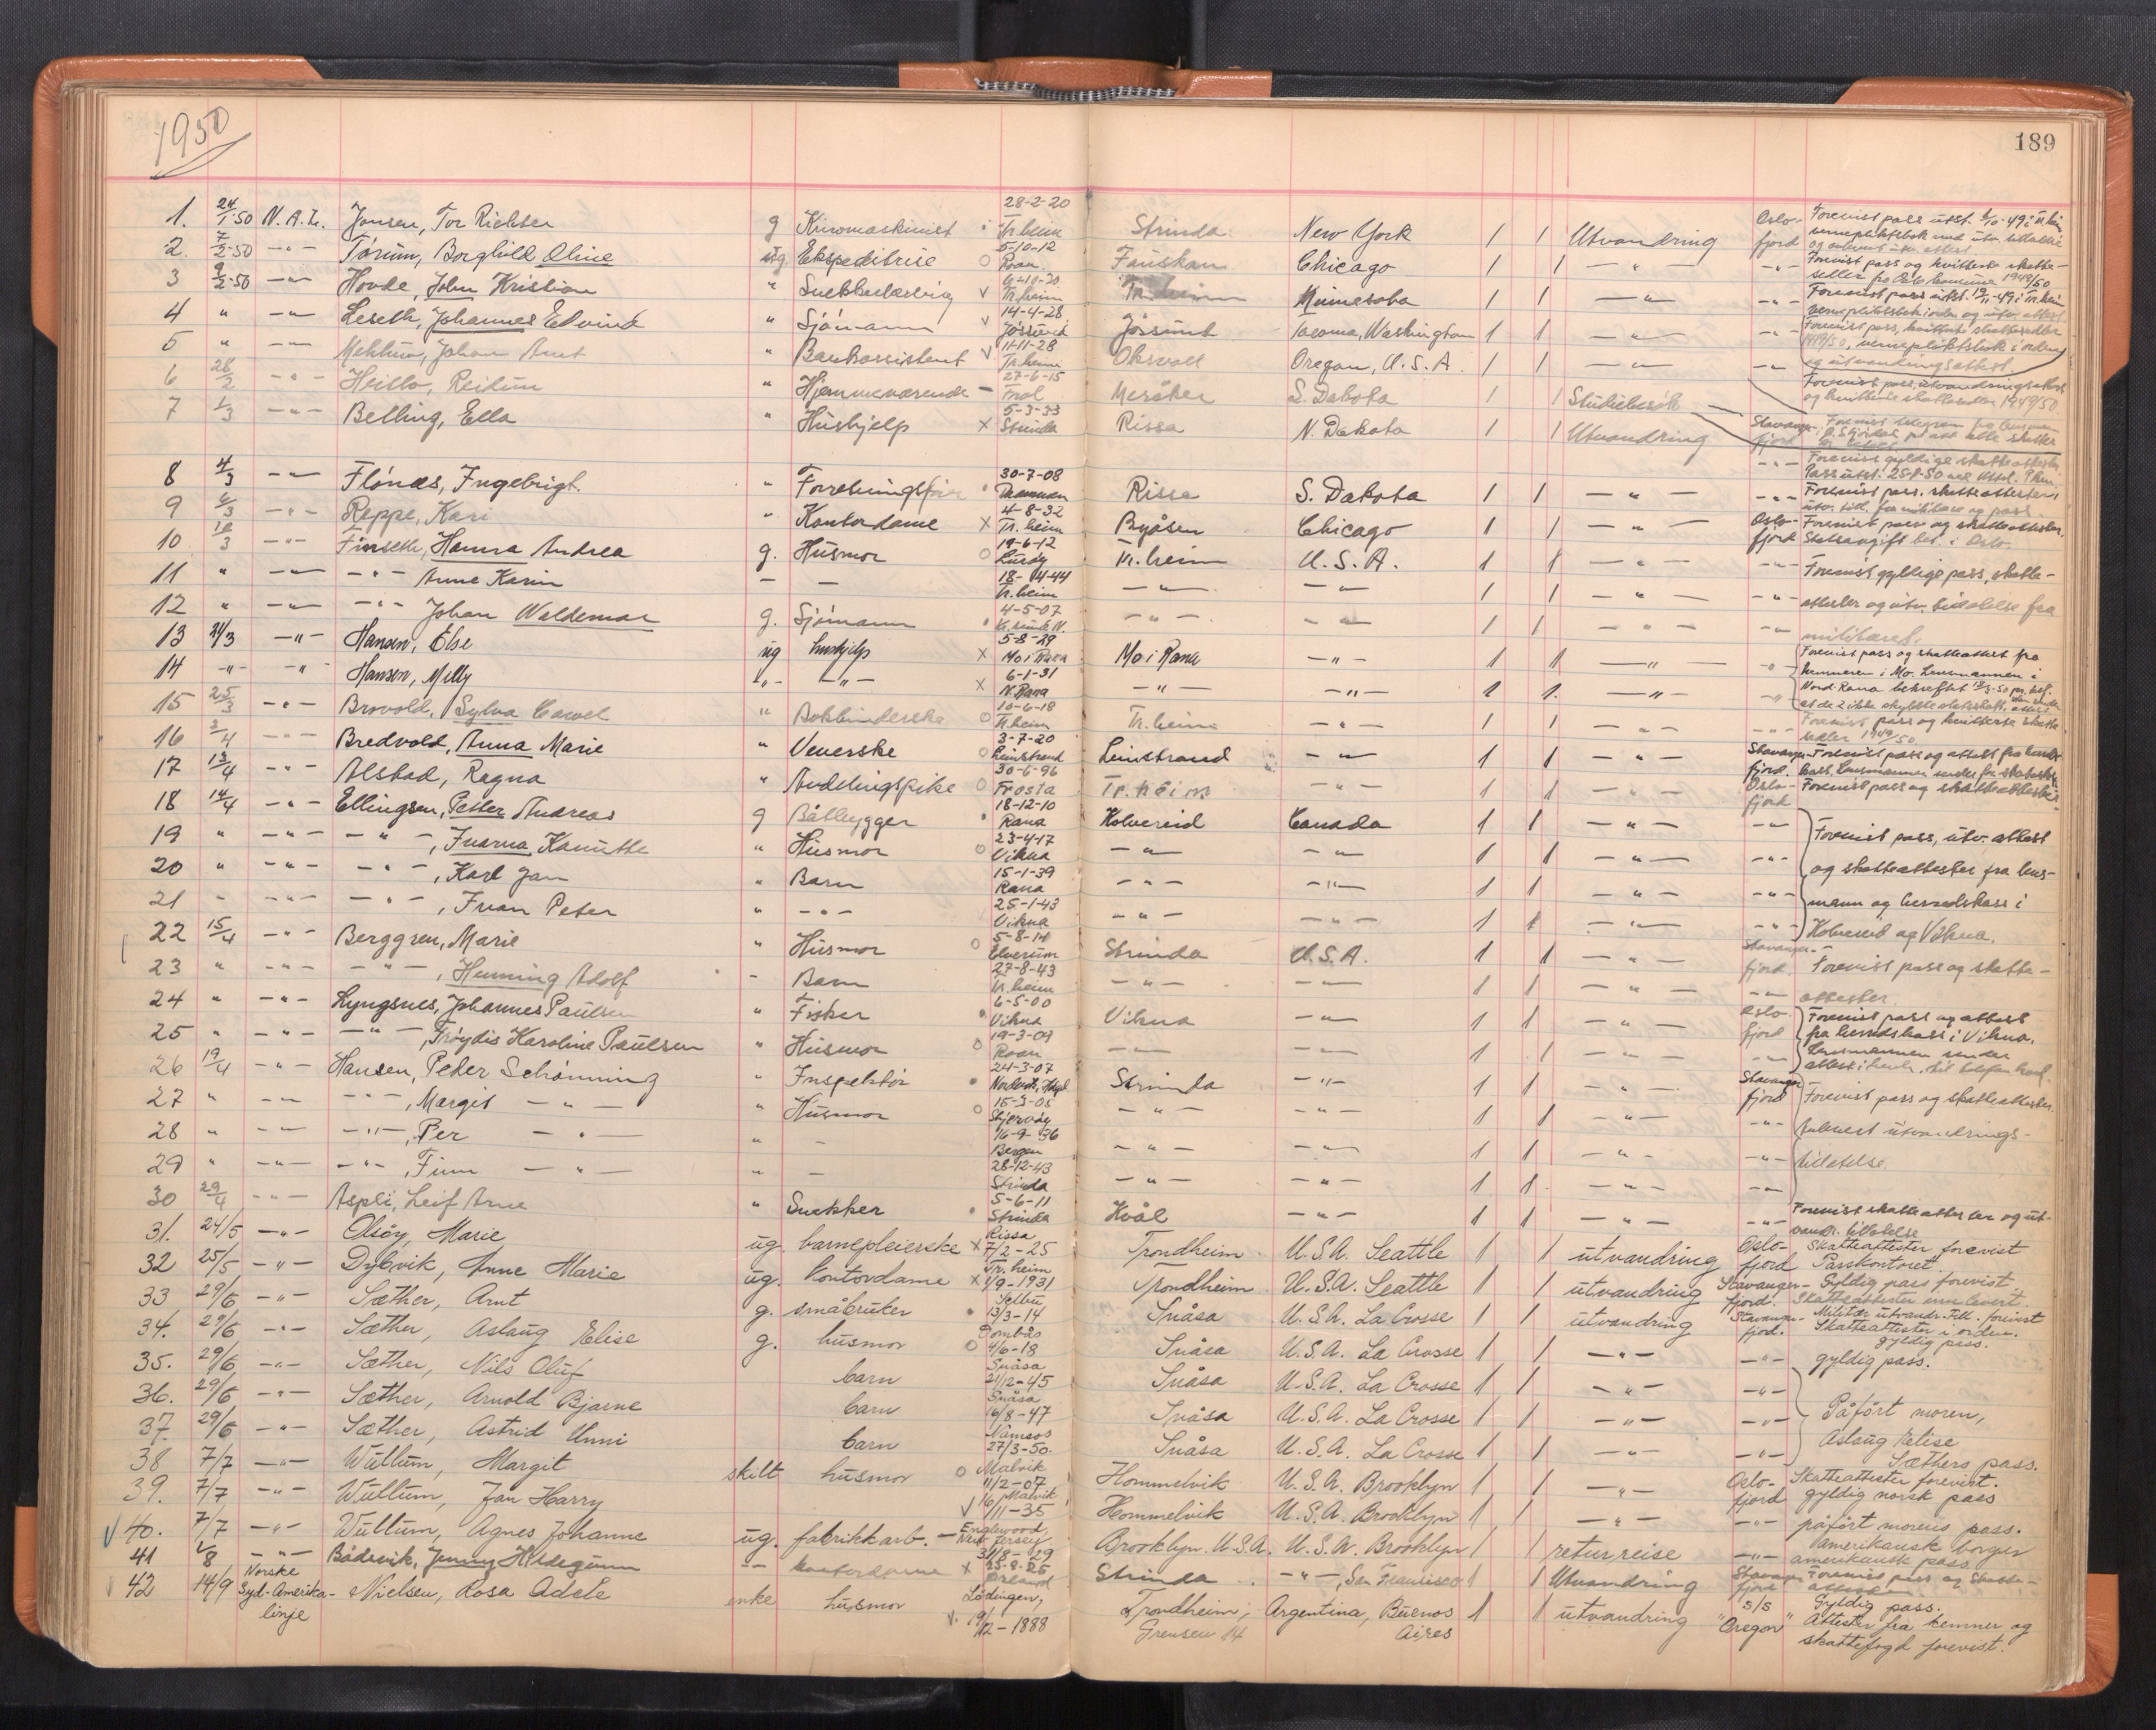 1950
189
1. 24/1-50 N.A.L. Jonsen, Tor Richter g Kinomaskinist 28-2-20 Tr.heim Strinda New York 1 1 Utvandring Oslofjord Forevist pass utst.
2. 7/2-50 -"- Tørum, Borghild Oline ug. Ekspeditrise 5-10-12 Roan Chicago 1 1 -"- -"- Forevist pass og kvitterte skattesedler 1949/50
3 9/2-50 -"- Hovde, John Kristian " Snekkerlærling 20 Tr.heim Tr.heim Minnesota 1 1 -"- -"- Forevist pass utst. i Tr.heim
4 " -"- Leseth, Johannes Edvind " Sjömann 14-4-28 Jössund Jössund Tacoma, Washington 1 1 -"- -"- Forevist pass, kvitterte skattesedler 1949/50, vernepliktsbok i orden
5 " -"- Johan Arnt " Bankassistent 11-11-28 Tr.heim Oregon, U.S.A. 1 1 -"- -"- og utvandringsattest
6 28/2 -"- Heitlo, Reidun " Hjemmeværende - 27-6-15 Frol Meråker S. Dakota 1 1 Studiebesök Forevist pass, utvandringsattest og kvitterte skattesedler 1949/50
7 1/3 -"- Belling, Ella " Hushjelp x 5-3-33 Strinda Rissa N. Dakota 1 1 Utvandring Stavangerfjord
8 4/3 -"- Flönæs, Ingebrigt. " 30-7-08 Rissa S. Dakota 1 1 -"- -"- Forevist gyldige skatteattester,
9 6/3 -"- Reppe, Kari " Kontordame x 4-8-32 Tr.heim Byåsen Chicago 1 1 -"- -"- Forevist pass, skatteattester,
10 16/3 -"- Finseth, Hanna Andrea g. Husmor o 19-6-12 Luröy Tr.heim U.S.A. 1 1 -"- Oslofjord Forevist pass og skatteattester, Statsavgift bet. i Oslo.
11 " -"- -"- Anne Karin - - 18-4-44 Tr.heim -"- -"- 1 1 -"- -"- Forevist gyldige pass, skatte-
12 " -"- -"- Johan Waldemar g. Sjömann 4-5-07 Kr.sund N. -"- -"- 1 1 -"- -"- attester og utv. tillatelse fra militæret.
13 21/3 -"- Hansen, Else ug hushjelp x 5-8-29 Mo i Rana Mo i Rana -"- 1 1 -"- -"- Forevist pass og skatteattest fra
14 -"- -"- Hansen, Milly -"- -"- x 6-1-31 N. Rana -"- -"- 1 1. -"- -"- kemneren i Mo. Lensmannen i Nord-Rana bekreftet
15 25/3 -"- Brovold, Sylva " Bokbinderske o 10-6-18 Tr.heim Tr.heim -"- 1 1 -"- -"- Forevist pass og kvitterte skattesedler 1949/50
16 3/4 -"- Bredvold, Anna Marie " Veverske o 3-7-20 Leinstrand Leinstrand -"- 1 1 -"- Stavangerfjord. Forevist pass og attest fra
17 13/4 -"- Alstad, Ragna " Avdelingspike o 30-6-96 Frosta Tr.heim -"- 1 1 -"- Oslofjord Forevist pass og skatteattester
18 14/4 -"- Ellingsen, Petter Andreas g Båtbygger 18-12-10 Rana Kolvereid Canada 1 1 -"- -"- Forevist pass, utv. attest
19 " -"- -"- , Kanutte " Husmor o 23-4-17 Vikna -"- -"- 1 1 -"- -"- og skatteattester fra lens-
20 " -"- -"- , Karl Jan " Barn 15-1-39 Rana -"- -"- 1 1 -"- -"- mann og herredskass i
21 " -"- -"- , Ivan Peter " -"- 25-1-43 Vikna -"- -"- 1 1 -"- -"- Kolvereid og Vikna.
22 15/4 -"- Berggren, Marie " Husmor o 5-8-14 Elverum Strinda U.S.A. 1 1 -"- Stavangerfjord. Forevist pass og skatte-
23 " -"- -"- , Henning Adolf - Barn 27-8-43 Tr.heim -"- -"- 1 1 -"- -"- attester
24 " -"- Lyngsnes, Johannes Paulsen " Fisker 6-5-00 Vikna Vikna -"- 1 1 -"- Oslofjord Forevist pass og attest
25 " -"- -"- , Fröydis Karoline Paulsen " Husmor o 19-3-09 Roan -"- -"- 1 1 -"- -"- fra herredskass i Vikna. Lensmannen sender
26 19/4 -"- Hansen, Peter Schönning " Inspektör 24-3-07 Strinda -"- 1 1 -"- Stavangerfjord Forevist pass og skatteattester.
27 " -"- -"- , Margit -"- " Husmor o 15-3-05 Skjervöy -"- -"- 1 1 -"- -"- utvandrings-
28 " -"- -"- , Per -"- " - 16-9-36 Bergen -"- -"- 1 1 -"- -"- tillatelse.
29 " -"- -"- , Finn -"- " - 28-12-43 Strinda -"- -"- 1 1 -"- -"-
30 29/4 -"- Aspli, Leif Arne " Snekker 5-6-11 Strinda Hvål -"- 1 1 -"- -"- Forevist skatteattester og utvandr. tillatelse
31. 24/5 -"- Olsöy, Marie ug. barnepleierske x Rissa 7/2-25 Trondheim U.S.A. Seattle 1 1 utvandring Oslofjord Skatteattester forevist Passkontoret.
32 25/5 -"- Dybvik, Anne Marie ug. kontordame x Tr.heim 1/9-1931 Trondheim U.S.A. Seattle 1 1 utvandring Stavangerfjord. Gyldig pass forevist. Skatteattester levert.
33 29/6 -"- Sæther, Arnt g. småbruker Selbu 13/3-14 Snåsa U.S.A. La Crosse 1 1 utvandring Stavangerfjord. Militær utvandr. till. forevist Skatteattester i orden. gyldig pass.
34. 29/6 -"- Sæther, Aslaug Elise g. husmor o Dombås 4/6-18 Snåsa U.S.A. La Crosse 1 1 -"- -"- gyldig pass.
35. 29/6 -"- Sæther, Nils Oluf barn Snåsa 21/12-45 Snåsa U.S.A. La Crosse 1 1 -"- -"- Påfört moren,
36. 29/6 -"- Sæther, Arnold Bjarne barn Snåsa 16/8-47 Snåsa U.S.A. La Crosse 1 1 -"- -"- Aslaug Elise
37. 29/6 -"- Sæther, Astrid Unni barn Namsos 27/3-50. Snåsa U.S.A. La Crosse 1 1 -"- -"- Sæthers pass.
38 7/7 -"- Wullum, Margit skilt husmor o Malvik 11/2-07 Hommelvik U.S.A. Brooklyn 1 1 -"- Oslofjord Skatteattester forevist. gyldig norsk pass
39. 7/7 -"- Wullum, Jan Harry Malvik 16/11-35 Hommelvik U.S.A. Brooklyn 1 1 -"- -"- påfört morens pass.
40. 7/7 -"- Wullum, Agnes Johanne ug. fabrikkarb. - Englewood, New Jersey 31/8-29 Brooklyn. U.S.A. U.S.A. Brooklyn 1 1 returreise -"- Amerikansk borger amerikansk pass
41 1/8 -"- Bådsvik, Jenny Hildegunn -"- kontordame x 25-8-26 Ørland Strinda -"-, San Francisco 1 1 Utvandring Stavangerfjord Forevist pass og skatteattester
42 14/9 Norske Syd-Amerika-linje Nielsen, Rosa Adele enke husmor Lödingen, 19/12-1888 Trondheim, Grensen 14 Argentina, Buenos Aires 1 1 utvandring S/S "Oregon" Gyldig pass. Attester fra kemner og skattefogd forevist.